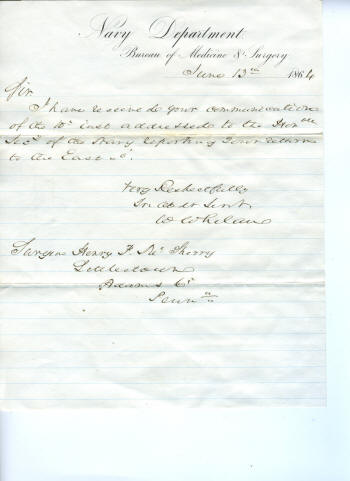 Navy Department,
Bureau of Medicine & Surgery
June 13th 1864
Sir
I have received your communication
of the 10th inst addressed to the Honble
Secy of the Navy, reporting your return
to the East &c.
Very Respectfully
Your Obdt Servt
W Whelan
Surgeon Henry F. McSherry
Littlestown
Adams Co
Penna